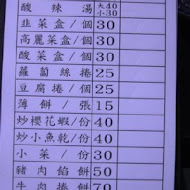 酸辣湯 大40 小30
韭菜盒/個 30
高麗菜盒/個 30
酸菜盒/個 30
蘿蔔絲捲 25
豆腐捲/個 25
薄餅/張 15
炒櫻花蝦/份 40
炒小魚乾/份 40
小菜/份 30
豬肉餡餅 50
牛肉捲餅 70